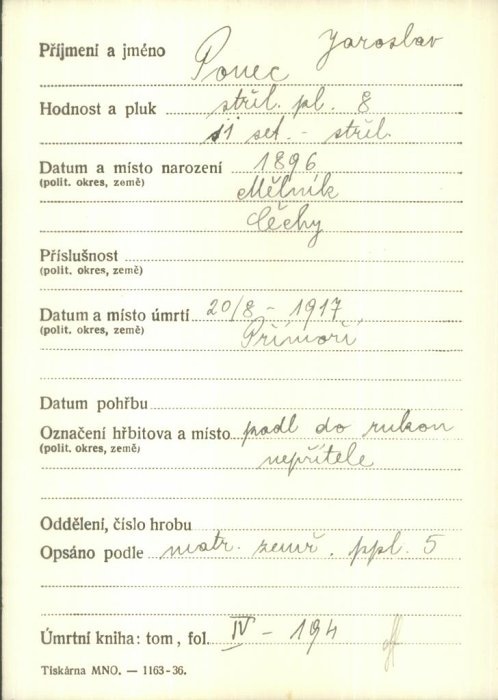 Příjmení a jméno Ponec Jaroslav
Hodnost a pluk střil. pl. 8
11 set. - střil.
Datum a místo narození 1896
(polit. okres, země) Mělník
Čechy
Příslušnost
(polit. okres, země)
Datum a místo úmrtí 20/8 - 1917
(polit. okres, země) Přímoří
Datum pohřbu
Označení hřbitova a místo padl do rukou
(polit. okres, země) nepřítele
Oddělení, číslo hrobu
Opsáno podle matr. zemř. ppl. 5
Úmrtní kniha: tom, fol. IV - 194
Tiskárna MNO. — 1163-36.